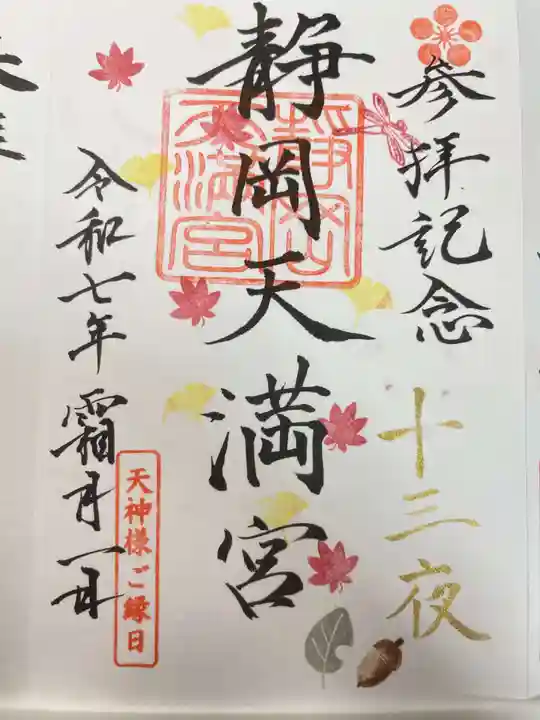 参拝記念
十三夜
静岡天満宮
静岡天満宮
令和七年霜月一日
天神様ご縁日